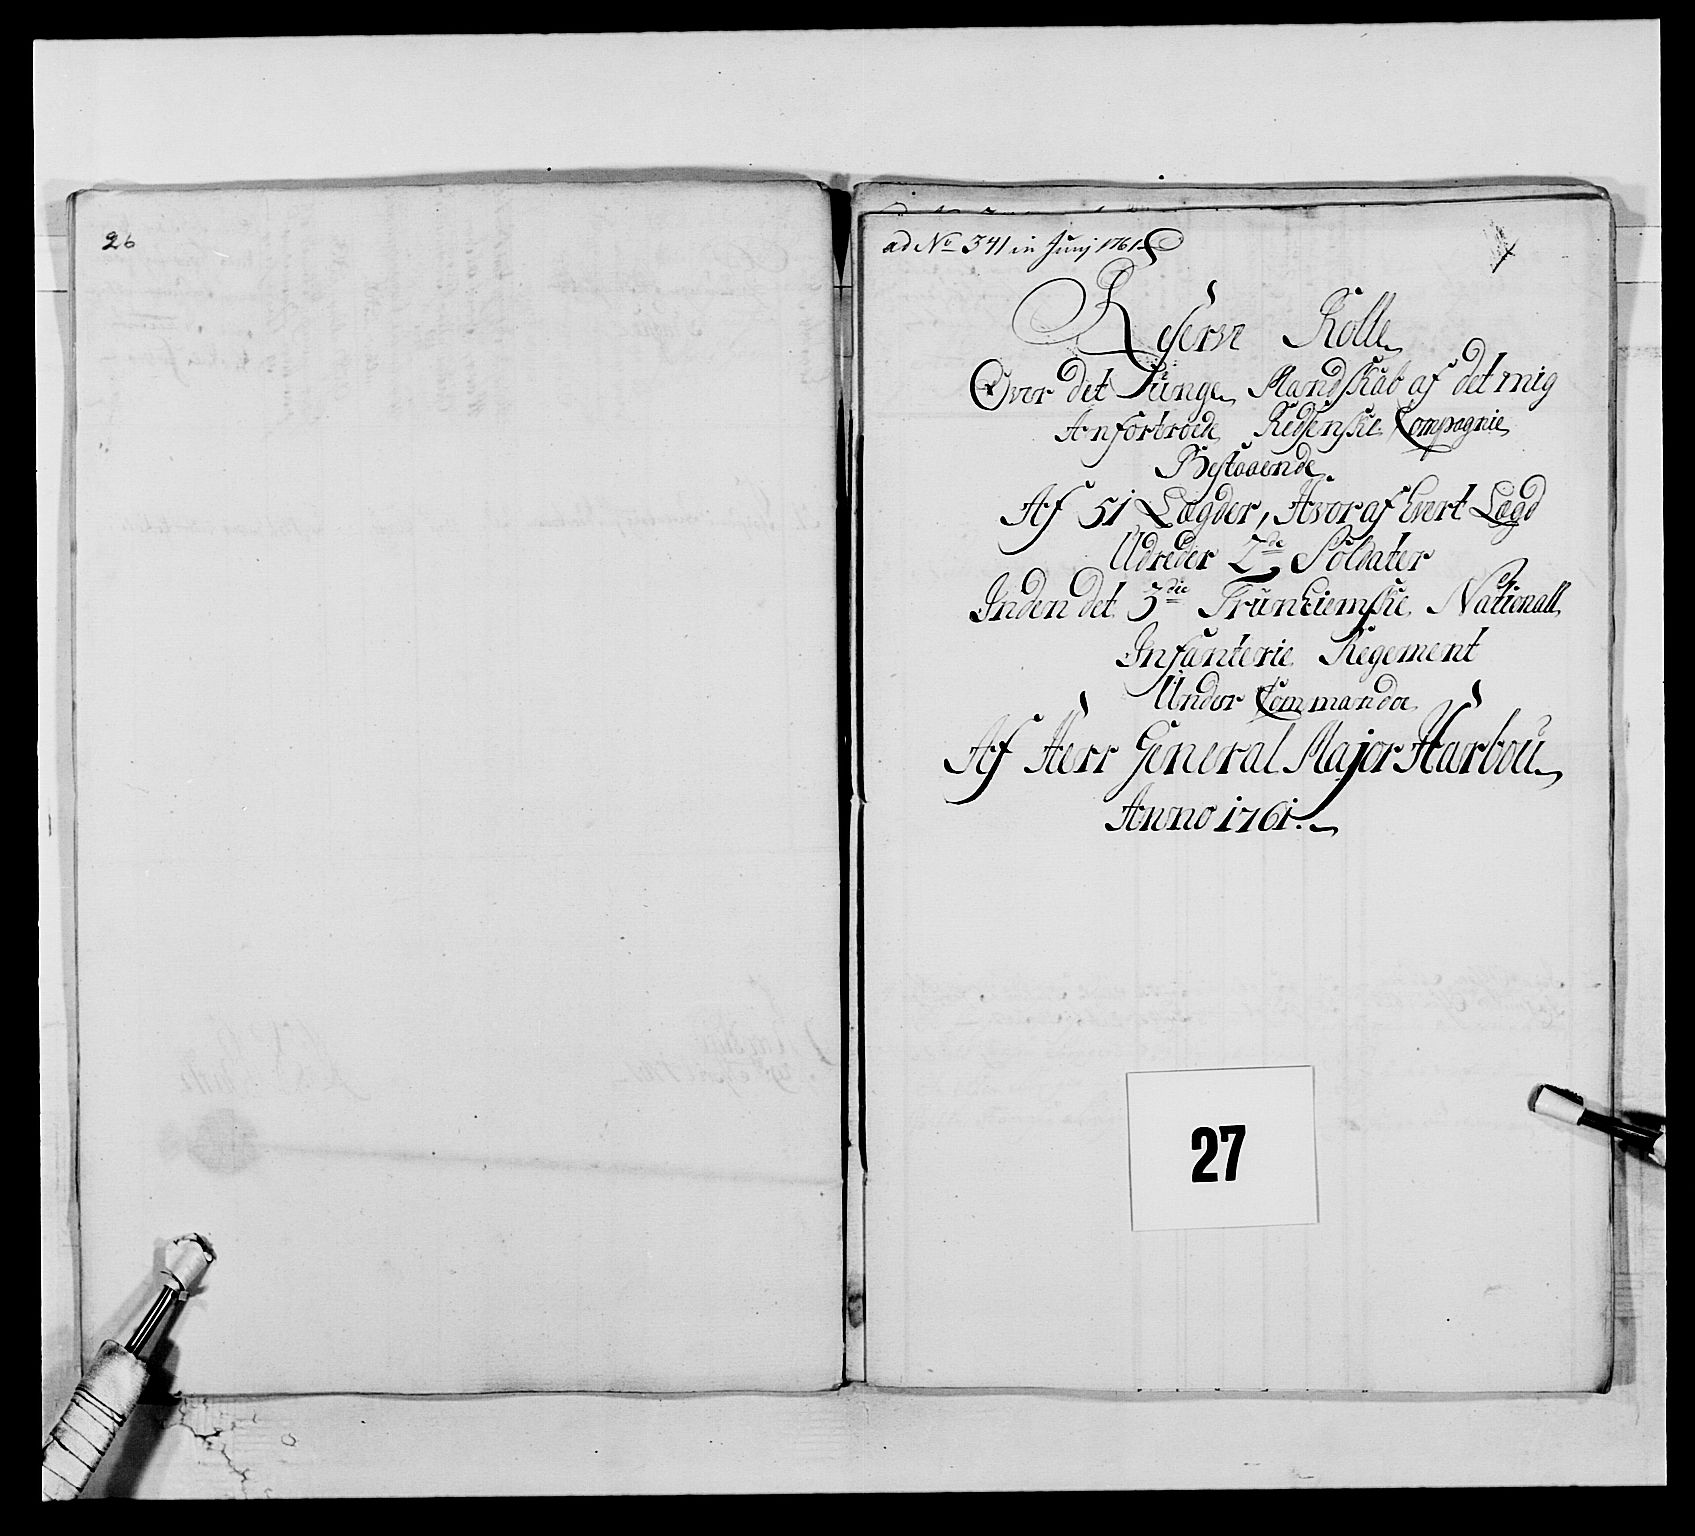 26
ad No 341 in Junj 1761
Reserve Rolle
Over det Unge Mandskab af det mig
Anfortroede Redenske Compagnie
Bestaaende
Af 51 Lægder, Hvoraf hvert Lægd
Udreder 2de Soldater
Inden det 3die Trundiemske Nationall
Infanterie Regement
Under Commando
Af Herr General Major Harbou
Anno 1761.
27